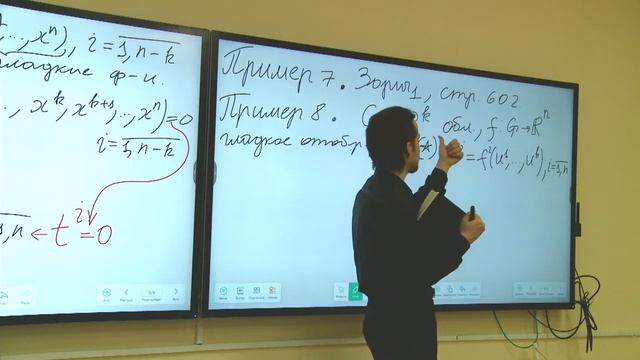 ..., xⁿ), i = 1, n-k
гладкие ф-и.
..., xᵏ, xᵏ⁺¹, .., xⁿ) = 0
i = 1, n-k
1, n ← tⁱ = 0
Пример 7. Зорич 1, стр. 602
Пример 8. обл., f: G → ℝⁿ
гладкое отобр (*) = fⁱ(u¹, .., uᵏ), i = 1, n